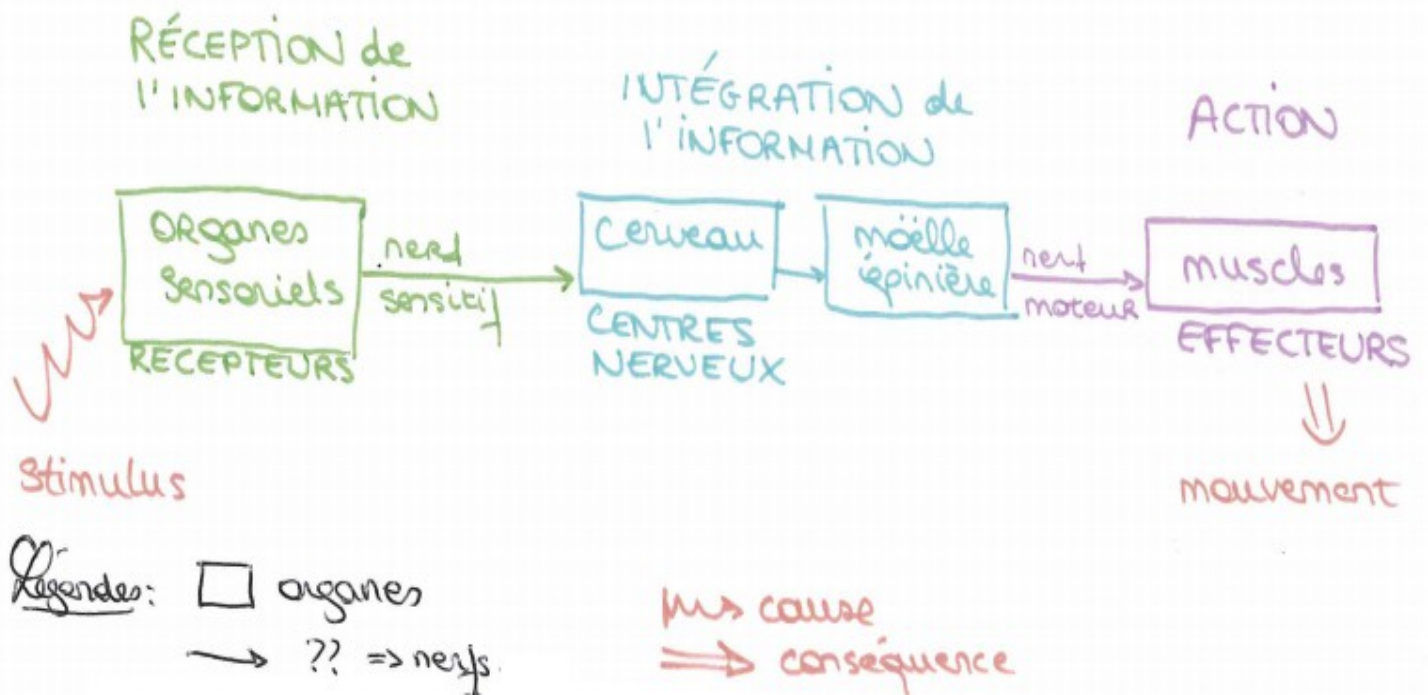 RÉCEPTION de
l'INFORMATION
INTÉGRATION de
l'INFORMATION
ACTION
ORganes
Sensoriels
nerf
sensitif
RÉCEPTEURS
Cerveau
CENTRES
NERVEUX
moëlle
épinière
nerf
moteur
muscles
EFFECTEURS
Stimulus
mouvement
Légendes: organes
?? => nerfs.
cause
conséquence